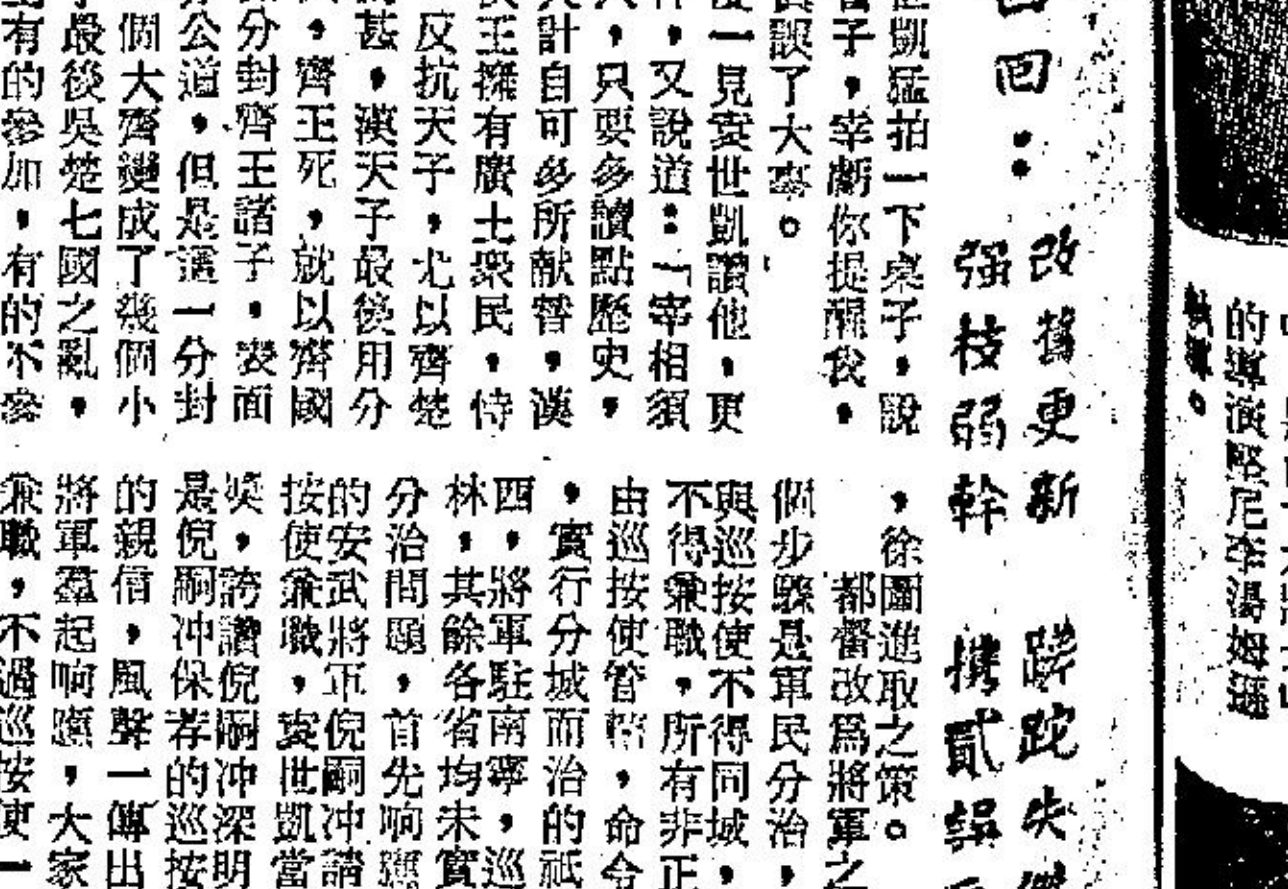 的導演堅尼李湯姆遜
執導。
回：
改舊更新　蹉跎失
强枝弱幹　携貳
世凱猛拍一下桌子，說
子，幸虧你提醒我，
誤了大事。
一見袁世凱讚他，更
，又說道：「宰相須
，只要多讀點歷史，
計自可多所献替，漢
王擁有廣土衆民，恃
反抗天子，尤以齊楚
甚，漢天子最後用分
，齊王死，就以齊國
分封齊王諸子，表面
公道，但是這一分封
個大齊變成了幾個小
最後吳楚七國之亂，
有的參加，有的不參
，徐圖進取之策。
都督改爲將軍之
個步驟是軍民分治，
與巡按使不得同城，
不得兼職，所有非正
由巡按使管轄，命令
，實行分城而治的祇
西，將軍駐南寧，巡
林，其餘各省均未實
分治問題，首先响應
的安武將軍倪嗣冲請
按使兼職，袁世凱當
奬，誇讚倪嗣冲深明
是倪嗣冲保荐的巡按
的親信，風聲一傳出
將軍羣起响應，大家
兼職，不過巡按使一